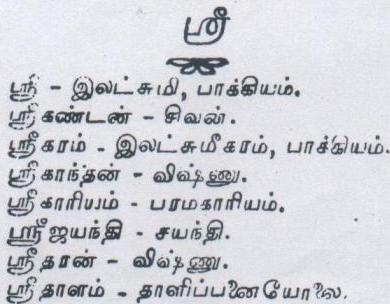 ஸ்ரீ
ஸ்ரீ - இலட்சுமி, பாக்கியம்.
ஸ்ரீகண்டன் - சிவன்.
ஸ்ரீகரம் - இலட்சுமீகரம், பாக்கியம்.
ஸ்ரீகாந்தன் - விஷ்ணு.
ஸ்ரீகாரியம் - பரமகாரியம்.
ஸ்ரீஜயந்தி - சயந்தி.
ஸ்ரீதரன் - விஷ்ணு.
ஸ்ரீதாளம் - தாளிப்பனையோலை.